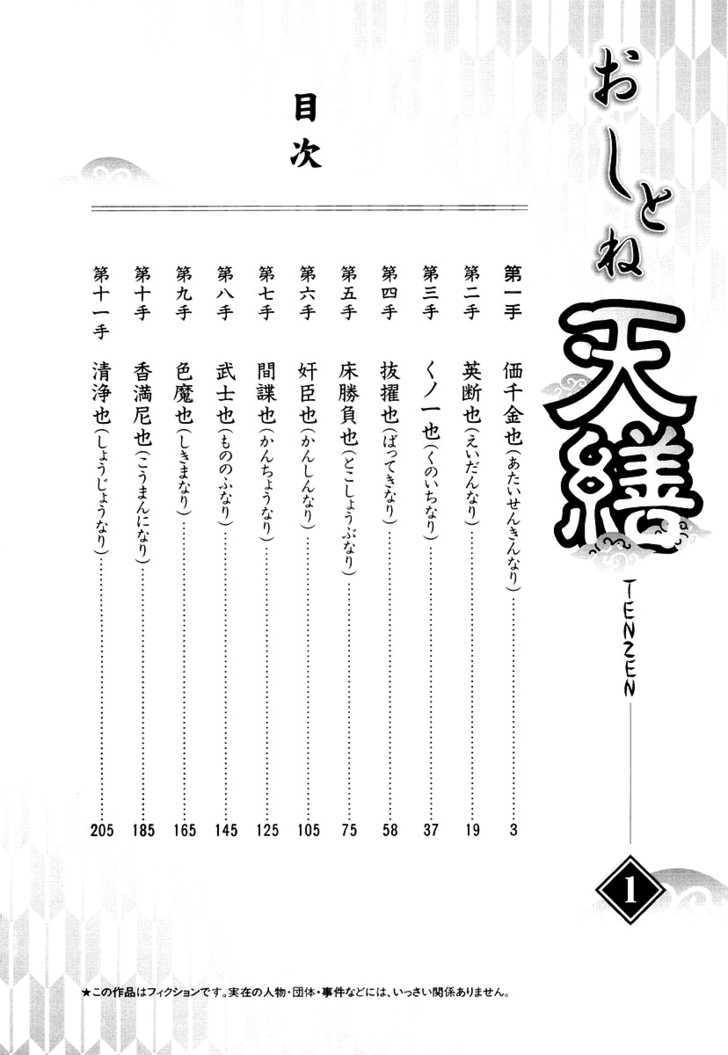 おしとね
天繕
TENZEN
1
目次
第一手 価千金也(あたいせんきんなり) 3
第二手 英断也(えいだんなり) 19
第三手 くノ一也(くのいちなり) 37
第四手 抜擢也(ばってきなり) 58
第五手 床勝負也(とこしょうぶなり) 75
第六手 奸臣也(かんしんなり) 105
第七手 間諜也(かんちょうなり) 125
第八手 武士也(もののふなり) 145
第九手 色魔也(しきまなり) 165
第十手 香満尼也(こうまんになり) 185
第十一手 清浄也(しょうじょうなり) 205
★この作品はフィクションです。実在の人物・団体・事件などには、いっさい関係ありません。